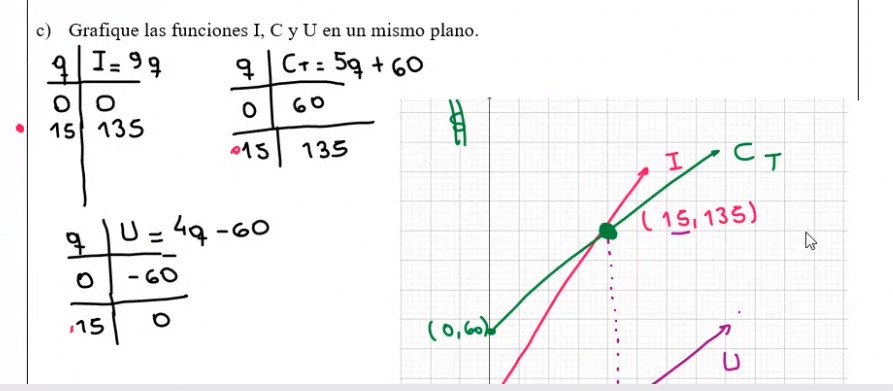 c) Grafique las funciones I, C y U en un mismo plano.
q | I = 9q
0 | 0
15 | 135
q | CT = 5q + 60
0 | 60
15 | 135
q | U = 4q - 60
0 | -60
15 | 0
$
I
CT
(15, 135)
(0, 60)
U